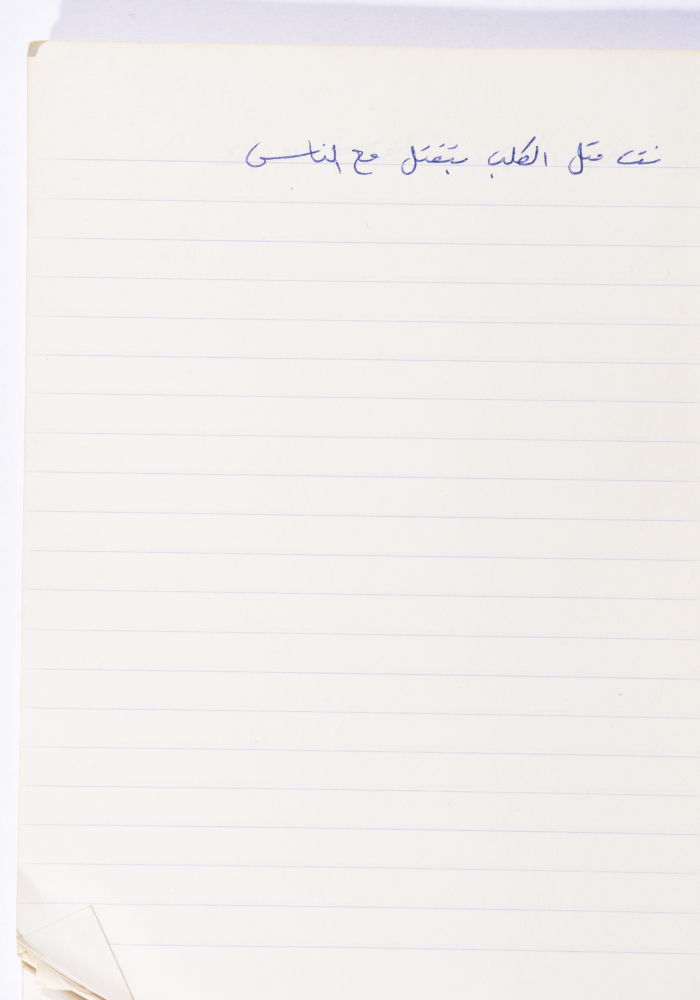 نت متل الكلب بتقتل مع الناس